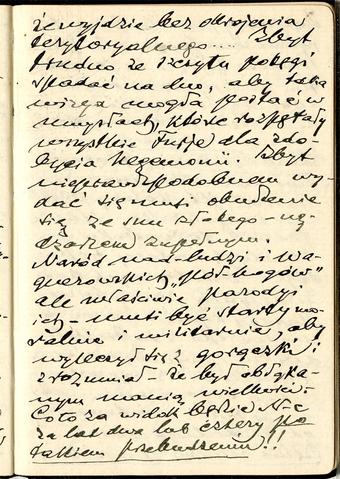 że wyjdzie bez okrojenia
terytorjalnego.... Zbyt
trudno ze szczytu potęgi
spadać na dno, aby taka
wizja mogła postać w
umysłach, które rozpętały
wszystkie Furje dla zdo-
bycia hegemonii. Zbyt
nieprawdopodobnem wy-
dać się musi obudzenie
się ze snu złotego - nę-
dzarzem zupełnym.
Naród nad-ludzi i wa-
gnerowskich "pół-bogów"
ale właściwie parodyi
ich - musi być starty mo-
ralnie i militarnie, aby
wyleczyć się z gorączki i
zrozumiał - że był obłąka-
nym manią wielkości.
Co to za widok będzie N-c
za lat dwa lub cztery po
takiem przebudzeniu!!